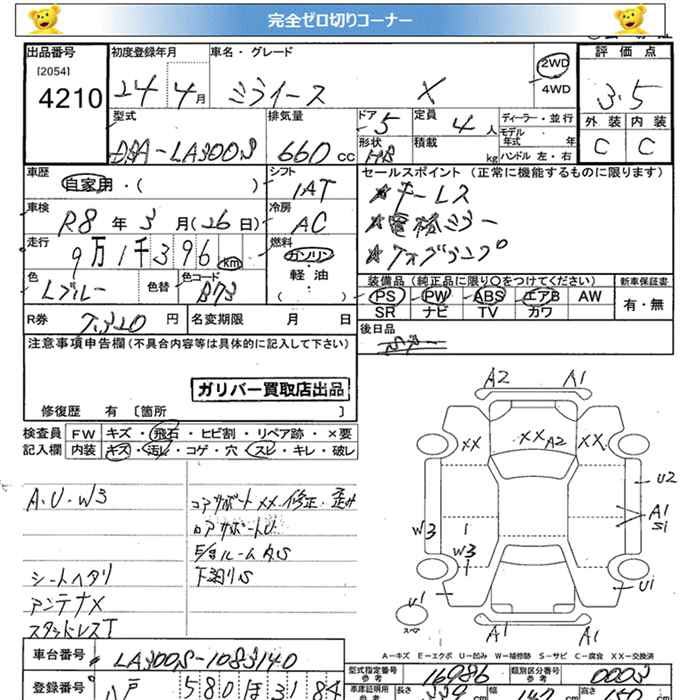 完全ゼロ切りコーナー
出品番号
[2054]
4210
初度登録年月
24 4月
車名・グレード
ミライース X
2WD
4WD
評価点
3.5
外装 内装
C C
型式
DBA-LA300S
排気量
660 cc
ドア
5
形状
HB
定員
4 人
積載
kg
ディーラー・並行
モデル年式 年
ハンドル 左・右
車歴
自家用・( )
シフト
IAT
車検
R8年3月(26日)
冷房
AC
走行
9万1千396 km
燃料
ガソリン
軽・油
( )
色
Lブルー
色替
色コード
B73
セールスポイント (正常に機能するものに限ります)
☆キーレス
☆電格ミラー
装備品 (純正品に限り○をつけてください)
PS PW ABS エアB AW
SR ナビ TV カワ
新車保証書
有・無
R券
7.310 円
名変期限 月 日
後日品
注意事項申告欄(不具合内容等は具体的に記入して下さい)
ガリバー買取店出品
修復歴 有 〔箇所 〕
検査員記入欄
FW キズ・飛石・ヒビ割・リペア跡・×要
内装 キズ・汚レ・コゲ・穴・スレ・キレ・破レ
A.U.W3
シートヘタリ
アンテナX
スタッドレスT
コアサポートXX.修正.歪み
ロアサポートU
下廻りS
A2 A1
XX XX A2 XX
U2
A1
S1
W3
W3
U1
U1
スペア
A1 A1
A-キズ E-エクボ U-凹み W-補修跡 S-サビ C-腐食 XX-交換済
車台番号
LA300S-1083140
型式指定番号 参考
16986
類別区分番号 参考
0003
登録番号
八戸 580 ほ 3184
車庫証明用 参考
長さ 339 cm
幅 147 cm
高さ 150 cm